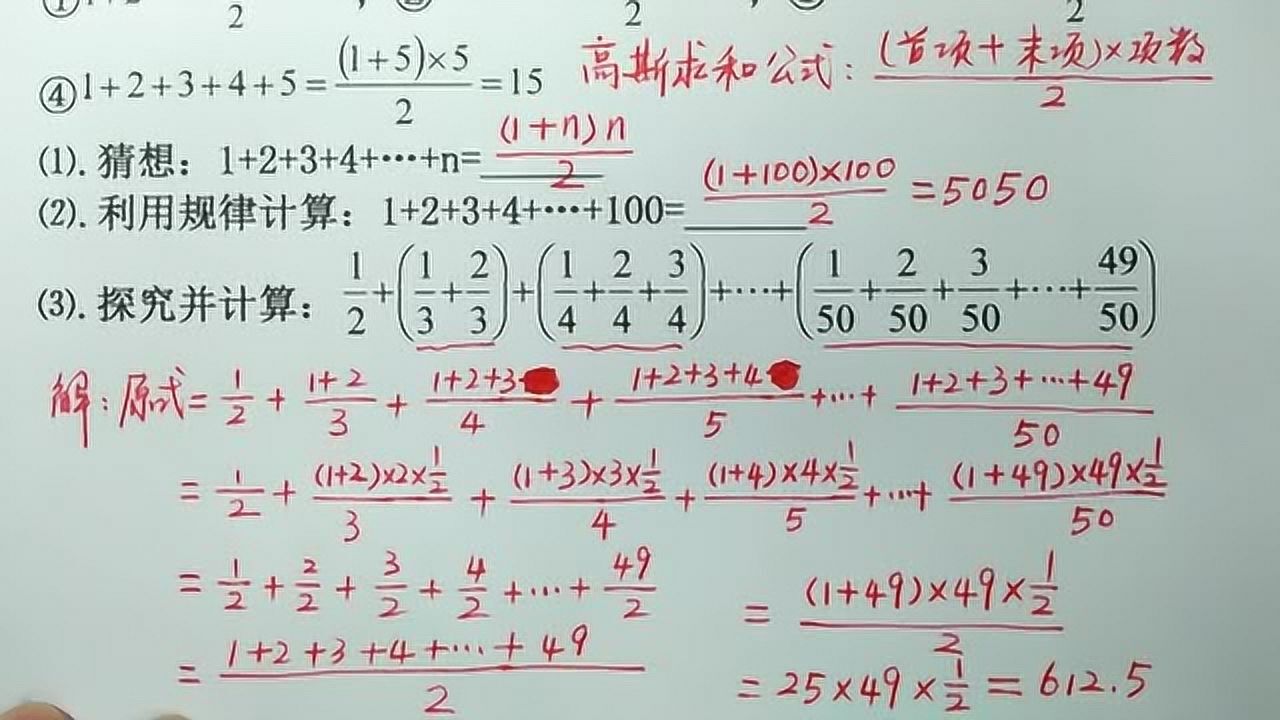 ④1+2+3+4+5=\frac{(1+5)×5}{2}=15 高斯求和公式：\frac{(首项+末项)×项数}{2}
(1). 猜想：1+2+3+4+···+n=\frac{(1+n)n}{2}
(2). 利用规律计算：1+2+3+4+···+100=\frac{(1+100)×100}{2}=5050
(3). 探究并计算：\frac{1}{2}+(\frac{1}{3}+\frac{2}{3})+(\frac{1}{4}+\frac{2}{4}+\frac{3}{4})+···+(\frac{1}{50}+\frac{2}{50}+\frac{3}{50}+···+\frac{49}{50})
解：原式=\frac{1}{2}+\frac{1+2}{3}+\frac{1+2+3}{4}+\frac{1+2+3+4}{5}+···+\frac{1+2+3+···+49}{50}
=\frac{1}{2}+\frac{(1+2)×2×\frac{1}{2}}{3}+\frac{(1+3)×3×\frac{1}{2}}{4}+\frac{(1+4)×4×\frac{1}{2}}{5}+···+\frac{(1+49)×49×\frac{1}{2}}{50}
=\frac{1}{2}+\frac{2}{2}+\frac{3}{2}+\frac{4}{2}+···+\frac{49}{2}
=\frac{1+2+3+4+···+49}{2}
=\frac{(1+49)×49×\frac{1}{2}}{2}
=25×49×\frac{1}{2}=612.5